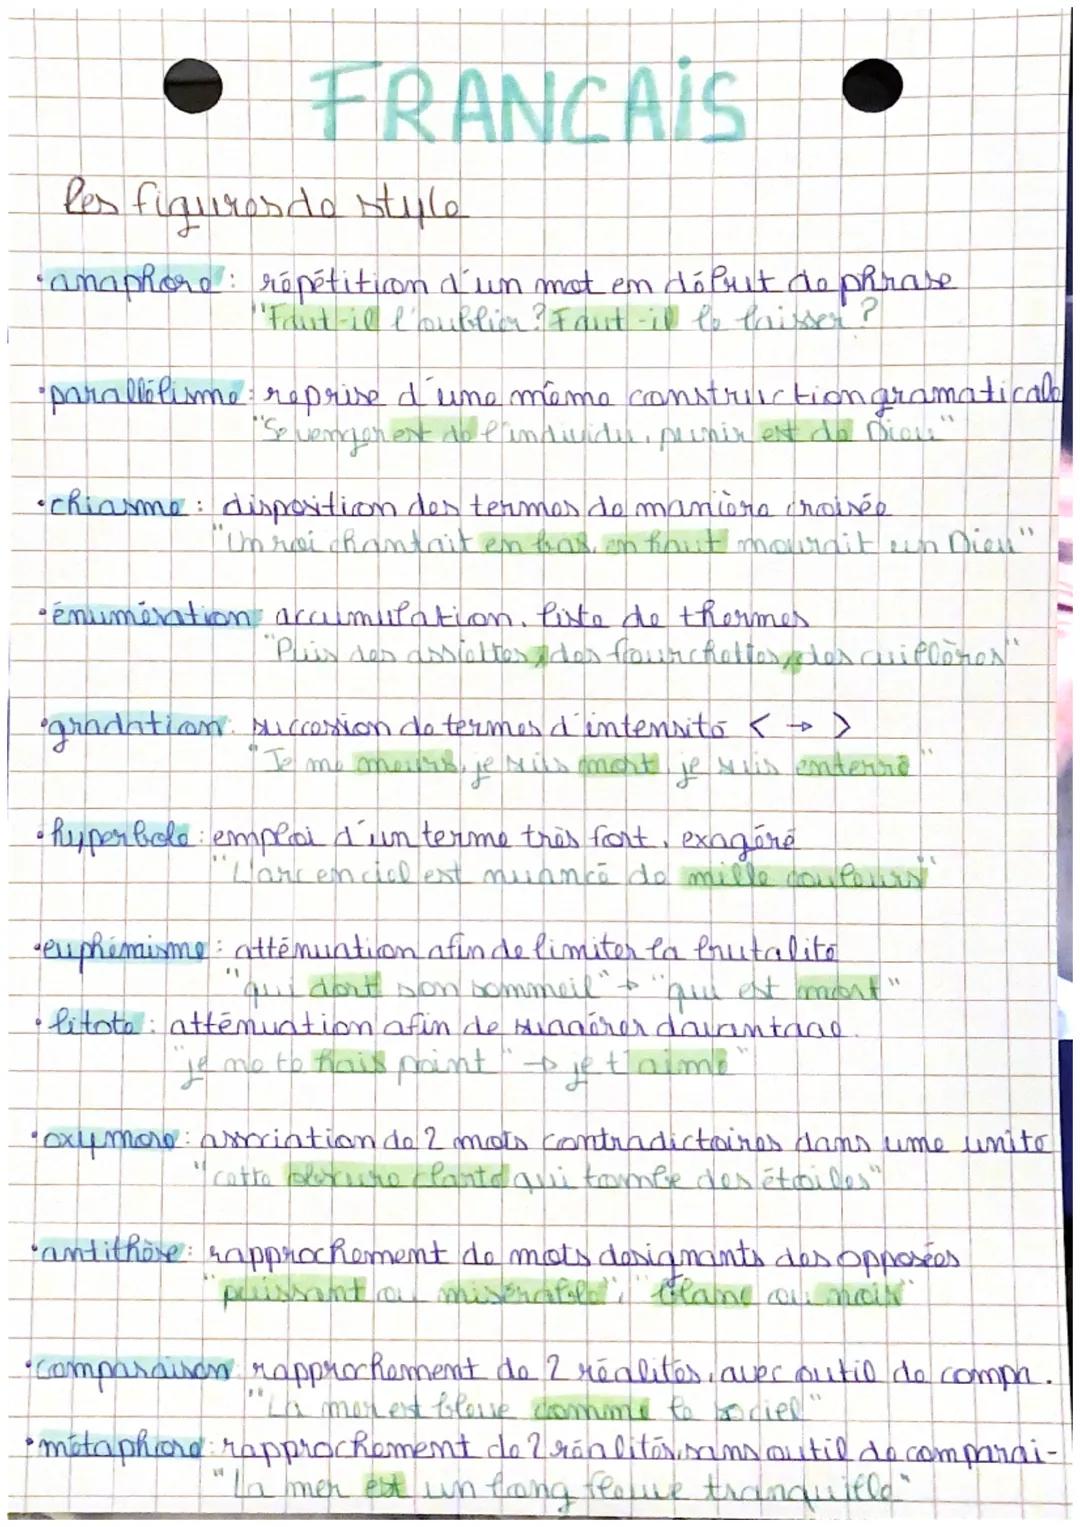 FRANCAIS
les figures de style
•anaphore : répétition d'un mot en début de phrase
"Faut-il l'oublier ? Faut-il le laisser ?
•parallélisme : reprise d'une même construction gramaticale
"Se venger est de l'individu, punir est de Dieu"
•chiasme : disposition des termes de manière croisée
"Un roi chantait en bas, en haut mourait un Dieu"
•énumération : accumulation, liste de thermes
"Puis des assiettes, des fourchettes, des cuillères"
•gradation : succession de termes d'intensité < → >
"Je me meurs, je suis mort, je suis enterré"
•hyperbole : emploi d'un terme très fort, exagéré
"L'arc en ciel est nuancé de mille couleurs"
•euphémisme : atténuation afin de limiter la brutalité
"qui dort son sommeil" → "qui est mort"
•litote : atténuation afin de suggérer davantage.
"je ne te hais point" → je t'aime"
•oxymore : association de 2 mots contradictoires dans une unité
"cette obscure clarté qui tombe des étoiles"
•antithèse : rapprochement de mots designants des opposées
"puissant ou misérable", "blanc ou noir"
•comparaison : rapprochement de 2 réalités, avec outil de compa.
"La mer est bleue comme le ciel"
•métaphore : rapprochement de 2 réalités, sans outil de comparai-
"La mer est un tranquille"